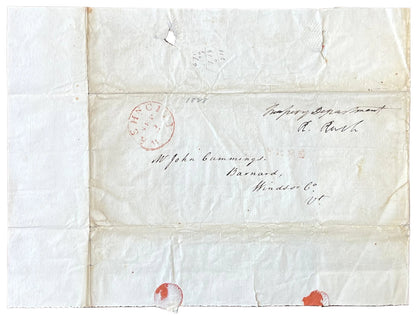 1828
Treasury Department
R. Rush
FREE
Mr John Cummings.
Barnard,
Windsor Co.
Vt.